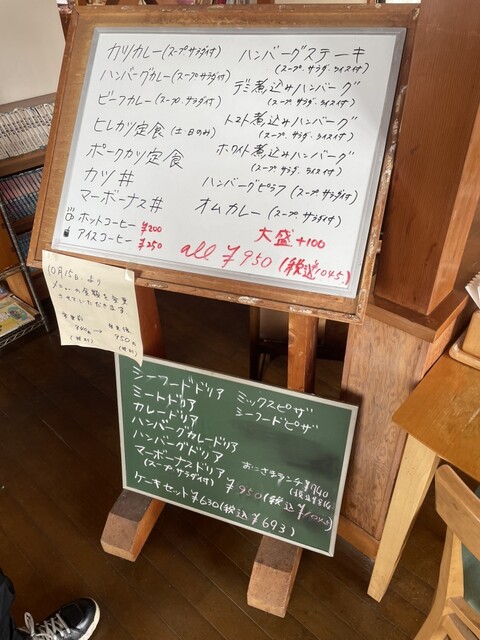 カツカレー(スープサラダ付)
ハンバーグカレー(スープサラダ付)
ビーフカレー(スープ.サラダ付)
ヒレカツ定食(土.日のみ)
ポークカツ定食
カツ丼
マーボーナス丼
ホットコーヒー ¥200
アイスコーヒー ¥250
ハンバーグステーキ
(スープ.サラダ.ライス付)
デミ煮込みハンバーグ
(スープ.サラダ.ライス付)
トマト煮込みハンバーグ
(スープ.サラダ.ライス付)
ホワイト煮込みハンバーグ
(スープ.サラダ.ライス付)
ハンバーグピラフ(スープ.サラダ付)
オムカレー(スープ.サラダ付)
大盛+100
all ¥950(税込1045)
10月15日より
の金額を変更
させていただきます
変更前 変更後
→ 950円
(税別) (税別)
シーフードドリア
ミートドリア
カレードリア
ハンバーグカレードリア
ハンバーグドリア
マーボーナスドリア
(スープサラダ付)
ミックスピザ
シーフードピザ
おこさまランチ¥740
(税込¥814)
¥950(税込¥1045)
ケーキセット¥630(税込¥693)